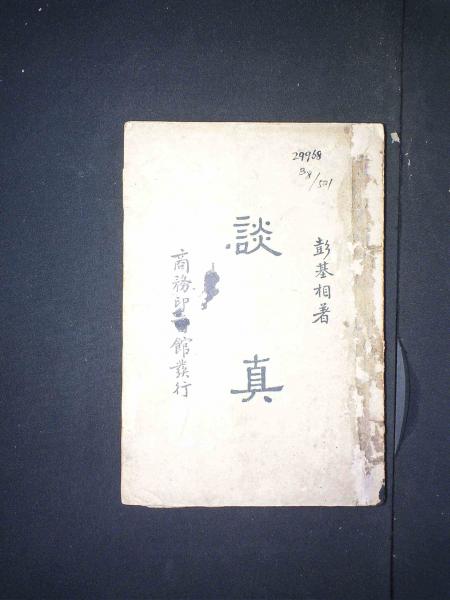 29968
彭基相著
談真
商務印書館發行